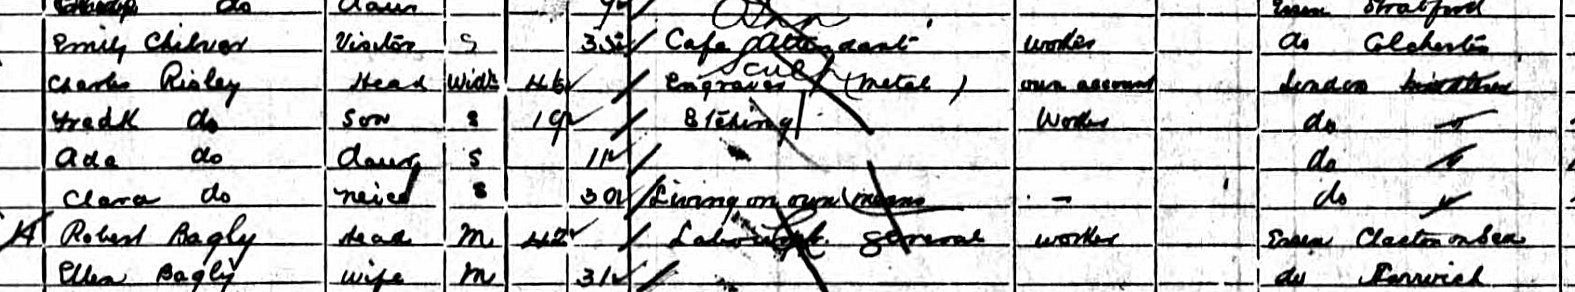 do daur
Emily Chilver Visitor S 35 Cafe Attendant worker do Colchester
Charles Risley Head Widr 46 Engraver (Metal) own account London
Fredk do Son S 19 Etching Worker do
Ada do daur S 11 do
Clara do neice S 30 Living on own means - do
Robert Bagly Head M 42 Labourer general worker Essex Clacton on Sea
Ellen Bagly wife M 31 do Harwich